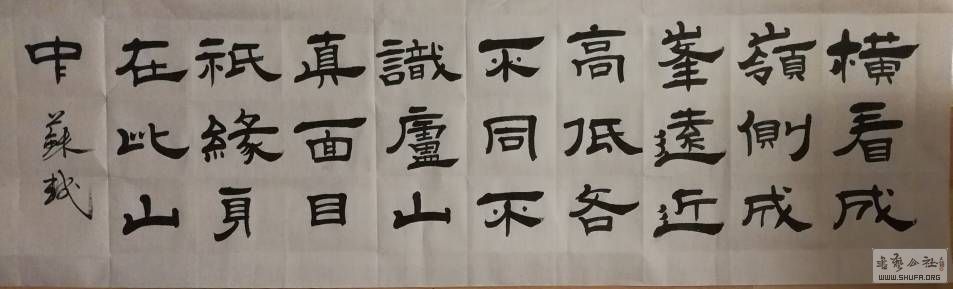 橫看成
嶺側成
峯遠近
高低各
不同不
識廬山
真面目
祇緣身
在此山
中 蘇
书艺公社
WWW.SHUFA.ORG